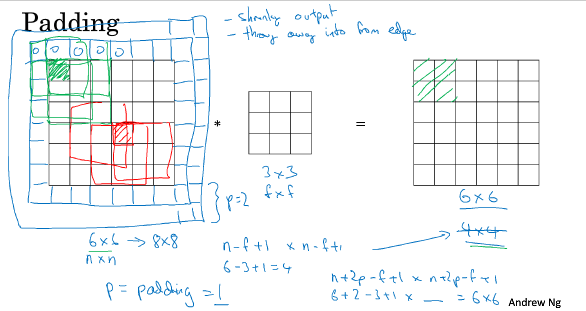 Padding
- shrinky output
- throw away info from edge
0 0 0 0 0
*
=
3 x 3
f x f
p=2
6 x 6
4 x 4
6 x 6 → 8 x 8
n x n
n-f+1 x n-f+1
6-3+1=4
p = padding = 1
n+2p-f+1 x n+2p-f+1
6+2-3+1 x __ = 6x6
Andrew Ng